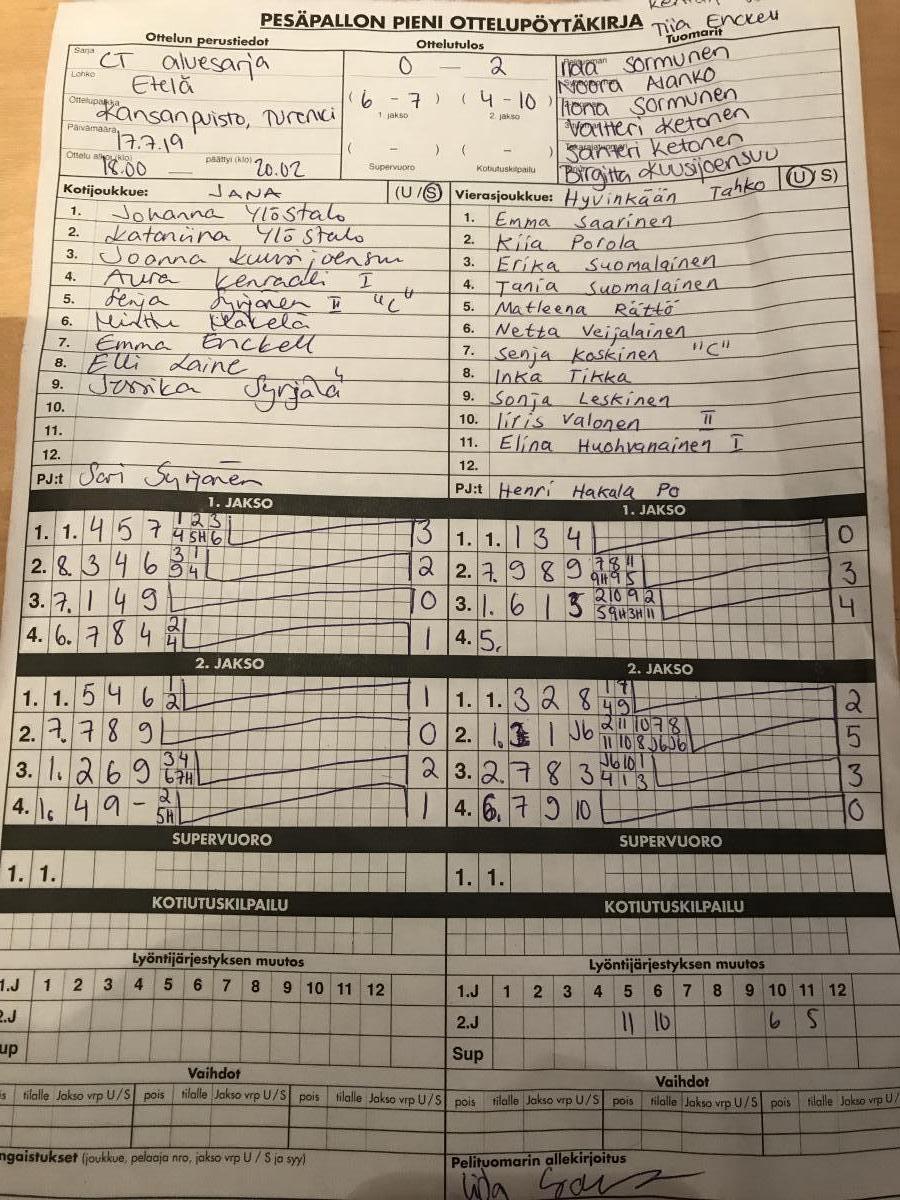 PESÄPALLON PIENI OTTELUPÖYTÄKIRJA
Tiia Enckell
Ottelun perustiedot
Ottelutulos
Tuomarit
Sarja CT aluesarja
Lohko Etelä
Ottelupaikka Kansanpuisto, Turenki
Päivämäärä 17.7.19
Ottelu alkoi (klo) 18.00 — päättyi (klo) 20.02
0 — 2
( 6 - 7 ) ( 4 - 10 )
1. jakso 2. jakso
( - ) ( - )
Supervuoro Kotiutuskilpailu
Sormunen
Noora Alanko
Ilona Sormunen
Valtteri Ketonen
Santeri Ketonen
Birgitta Kuusijoensuu
Kotijoukkue: JANA (U/S)
1. Johanna Ylöstalo
2. Katariina Ylöstalo
3. Joanna Kuusijoensuu
4. Aura I
5. Senja Syrjänen II "C"
6. Minttu Mäkelä
7. Emma Enckell
8. Elli Laine
9. Syrjälä
10.
11.
12.
PJ:t Sari Syrjänen
Vierasjoukkue: Hyvinkään Tahko (U/S)
1. Emma Saarinen
2. Kiia Porola
3. Erika Suomalainen
4. Tania Suomalainen
5. Matleena Rättö
6. Netta Veijalainen
7. Senja Koskinen "C"
8. Inka Tikka
9. Sonja Leskinen
10. Iiris Valonen II
11. Elina Huohvanainen I
12.
PJ:t Henri Hakala PO
1. JAKSO
1. 1. 4 5 7 1 2 3 3
4 5H 6
2. 8. 3 4 6 3 1 2
9 4
3. 7. 1 4 9 0
4. 6. 7 8 4 2 1
4
1. JAKSO
1. 1. 1 3 4 0
2. 7. 9 8 9 7 8 11 3
9H 9 5
3. 1. 6 1 5 2 10 9 2 4
5 9H 3H 11
4. 5.
2. JAKSO
1. 1. 5 4 6 1 1
2
2. 7. 7 8 9 0
3. 1. 2 6 9 3 4 2
6 7H
4. 1. 4 9 - 2 1
5H
2. JAKSO
1. 1. 3 2 8 1 7 2
4 9
2. 1. 1 J6 2 11 10 7 8 5
11 10 8 J6 J6
3. 2. 7 8 3 J6 10 1 3
4 1 3
4. 6. 7 9 10 0
SUPERVUORO
1. 1.
SUPERVUORO
1. 1.
KOTIUTUSKILPAILU
KOTIUTUSKILPAILU
Lyöntijärjestyksen muutos
1.J 1 2 3 4 5 6 7 8 9 10 11 12
2.J
up
Lyöntijärjestyksen muutos
1.J 1 2 3 4 5 6 7 8 9 10 11 12
2.J 11 10 6 5
Sup
Vaihdot
is tilalle Jakso vrp U/S pois tilalle Jakso vrp U/S pois tilalle Jakso vrp U/S
Vaihdot
pois tilalle Jakso vrp U/S pois tilalle Jakso vrp U/S pois tilalle Jakso vrp U/
ngaistukset (joukkue, pelaaja nro, jakso vrp U / S ja syy)
Pelituomarin allekirjoitus